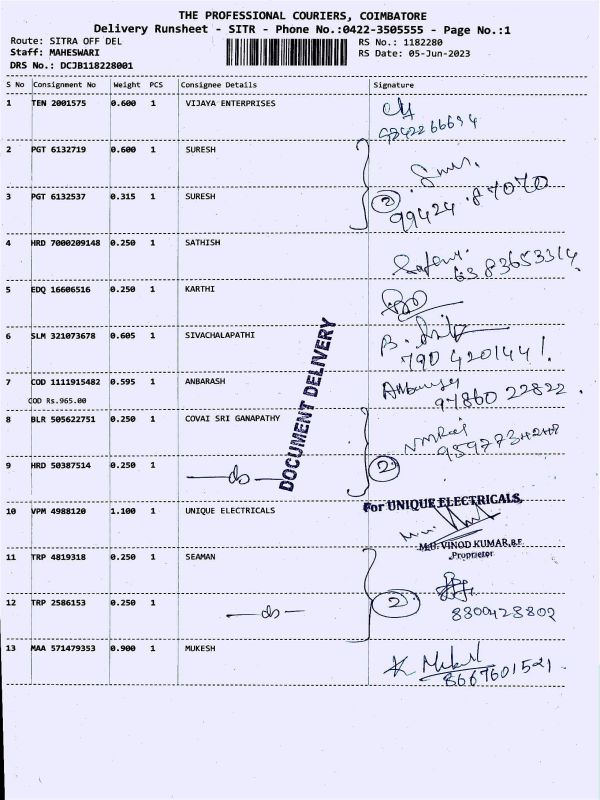 THE PROFESSIONAL COURIERS, COIMBATORE
Delivery Runsheet - SITR - Phone No.:0422-3505555 - Page No.:1
Route: SITRA OFF DEL RS No.: 1182280
Staff: MAHESWARI RS Date: 05-Jun-2023
DRS No.: DCJB118228001
S No Consignment No Weight PCS Consignee Details Signature
1 TEN 2001575 0.600 1 VIJAYA ENTERPRISES
2 PGT 6132719 0.600 1 SURESH
3 PGT 6132537 0.315 1 SURESH 2
99424 87070
4 HRD 7000209148 0.250 1 SATHISH
63 83653314
5 EDQ 16606516 0.250 1 KARTHI
6 SLM 321073678 0.605 1 SIVACHALAPATHI
790 4201441
7 COD 1111915482 0.595 1 ANBARASH
97860 22822
COD Rs.965.00
8 BLR 505622751 0.250 1 COVAI SRI GANAPATHY
9 HRD 50387514 0.250 1 do 2
DOCUMENT DELIVERY
10 VPM 4988120 1.100 1 UNIQUE ELECTRICALS
For UNIQUE ELECTRICALS,
M.U. VINOD KUMAR, B.E.
Proprietor
11 TRP 4819318 0.250 1 SEAMAN
12 TRP 2586153 0.250 1 do 2
8300428802
13 MAA 571479353 0.900 1 MUKESH
8667601521